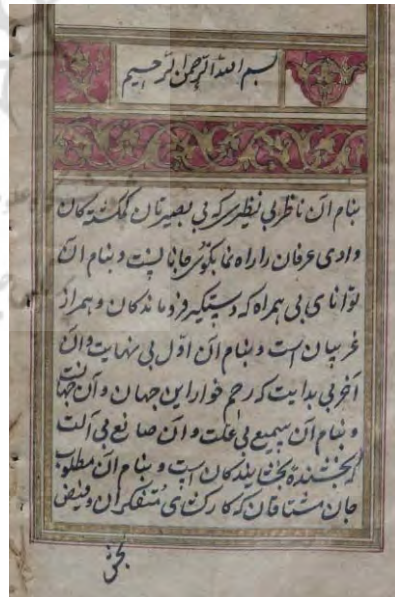 بسم الله الرحمن الرحیم
بنام ان ناظر بی نظیری که بی بصیرتان کمکشته کان
وادی عرفان را راه نما بکوی جانانست و بنام ان
توانای بی همراه که دستکیر فرو ماندکان و همراز
غریبان است و بنام ان اول بی نهایت و ان
آخر بی بدایت که رحم خوار این جهان و آن جهانست
و بنام آن سمیع بی علت و ان صانع بی آلت
که بخشندهٔ بخشایندکان است و بنام ان مطلوب
جان مشتاقان که کارکشای متفکران و فیض
بخش